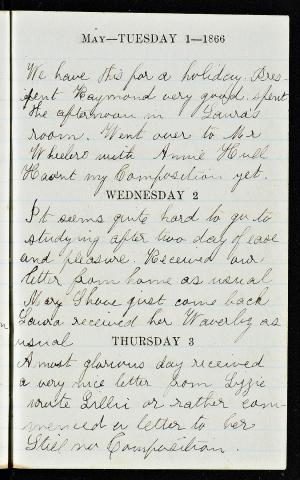 May—TUESDAY 1—1866
We have this for a holiday. Pres-
ident Raymond very good. spent
the afternoon in Laura's
room. Went over to Mr
Wheelers with Annie Hull
Havnt my Composition yet.
WEDNESDAY 2
It seems quite hard to go to
studying after two day of ease
and pleasure. Received our
letter from home as usual
Mary Shove just come back
Laura received her Waverley as
usual
THURSDAY 3
A most glorious day received
a very nice letter from Lizzie
wrote Lillie or rather com-
menced a letter to her
Still no Composition.